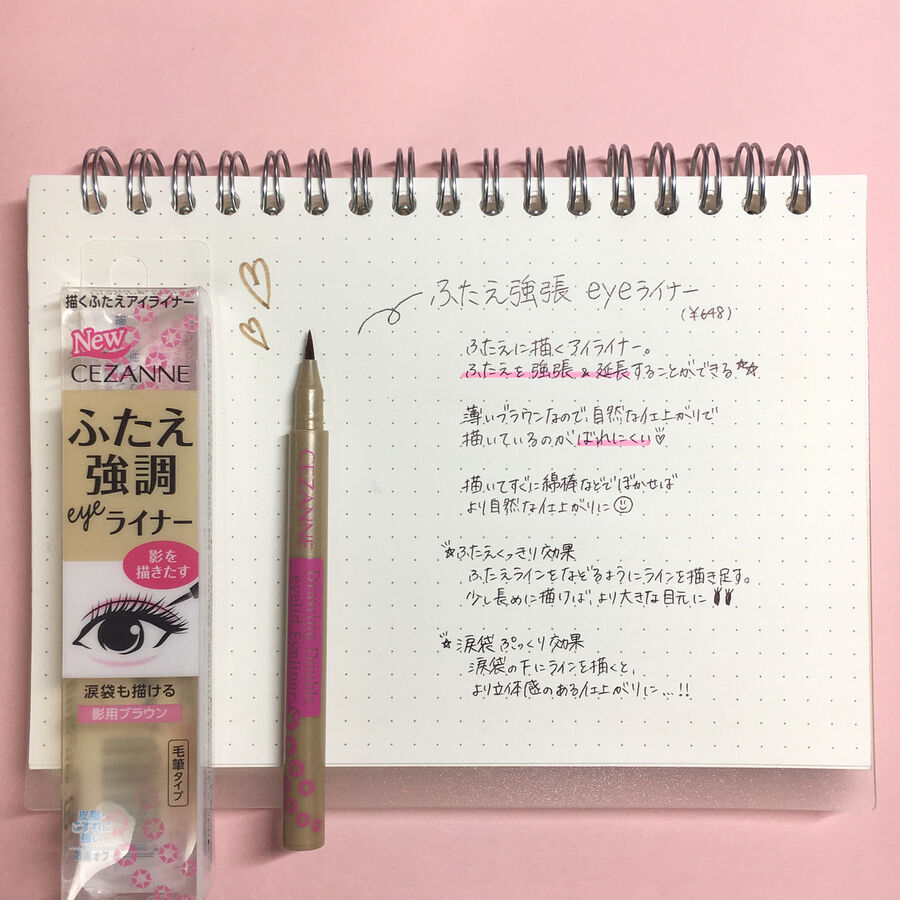 描くふたえアイライナー
New
CEZANNE
ふたえ
強調
eyeライナー
影を
描きたす
涙袋も描ける
影用ブラウン
毛筆タイプ
皮脂・
こすれに
強い
CEZANNE
Drawing Double
eyelid Eyeliner
ふたえ強張 eyeライナー
(¥648)
ふたえに描くアイライナー。
ふたえを強張&延長することができる
薄いブラウンなので、自然な仕上がりで
描いているのがばれにくい♡
描いてすぐに綿棒などでぼかせば
より自然な仕上がりに☺
☆ふたえくっきり効果
ふたえラインをなぞるようにラインを描き足す。
少し長めに描けば、より大きな目元に
☆涙袋ぷっくり効果
涙袋の下にラインを描くと、
より立体感のある仕上がりに…!!